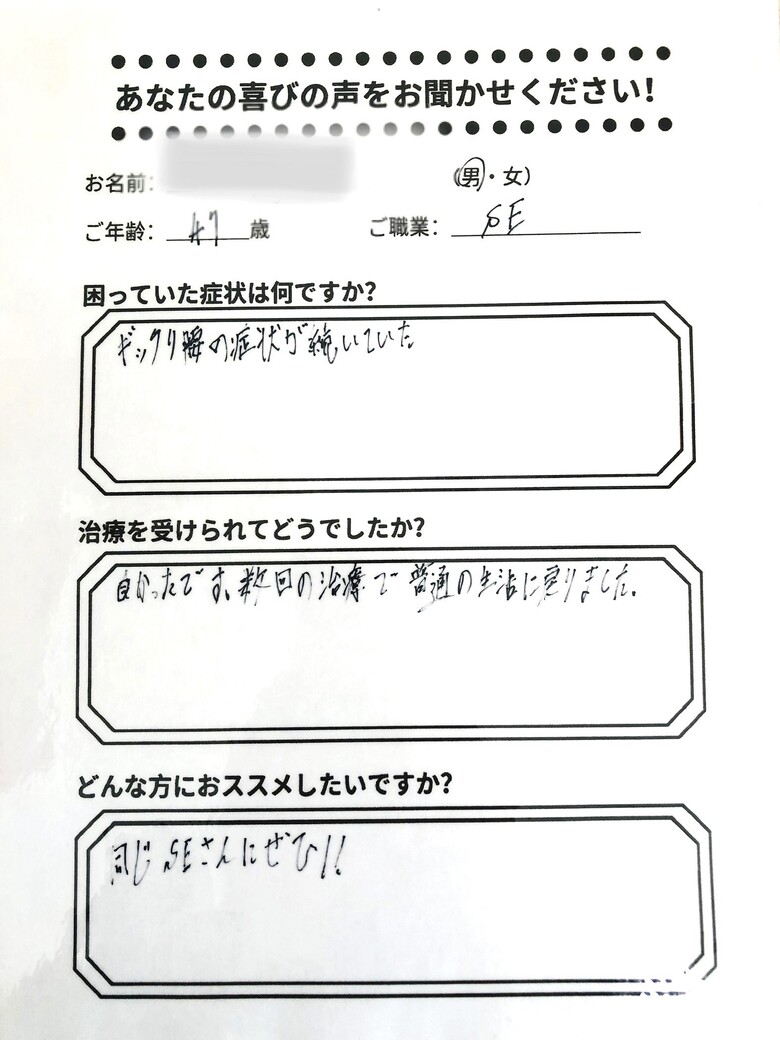 あなたの喜びの声をお聞かせください!
お名前: (男・女)
ご年齢: 47歳 ご職業: SE
困っていた症状は何ですか?
ギックリ腰の症状が続いていた
治療を受けられてどうでしたか?
良かったです。数回の治療で普通の生活に戻りました。
どんな方におススメしたいですか?
同じSEさんにぜひ!!